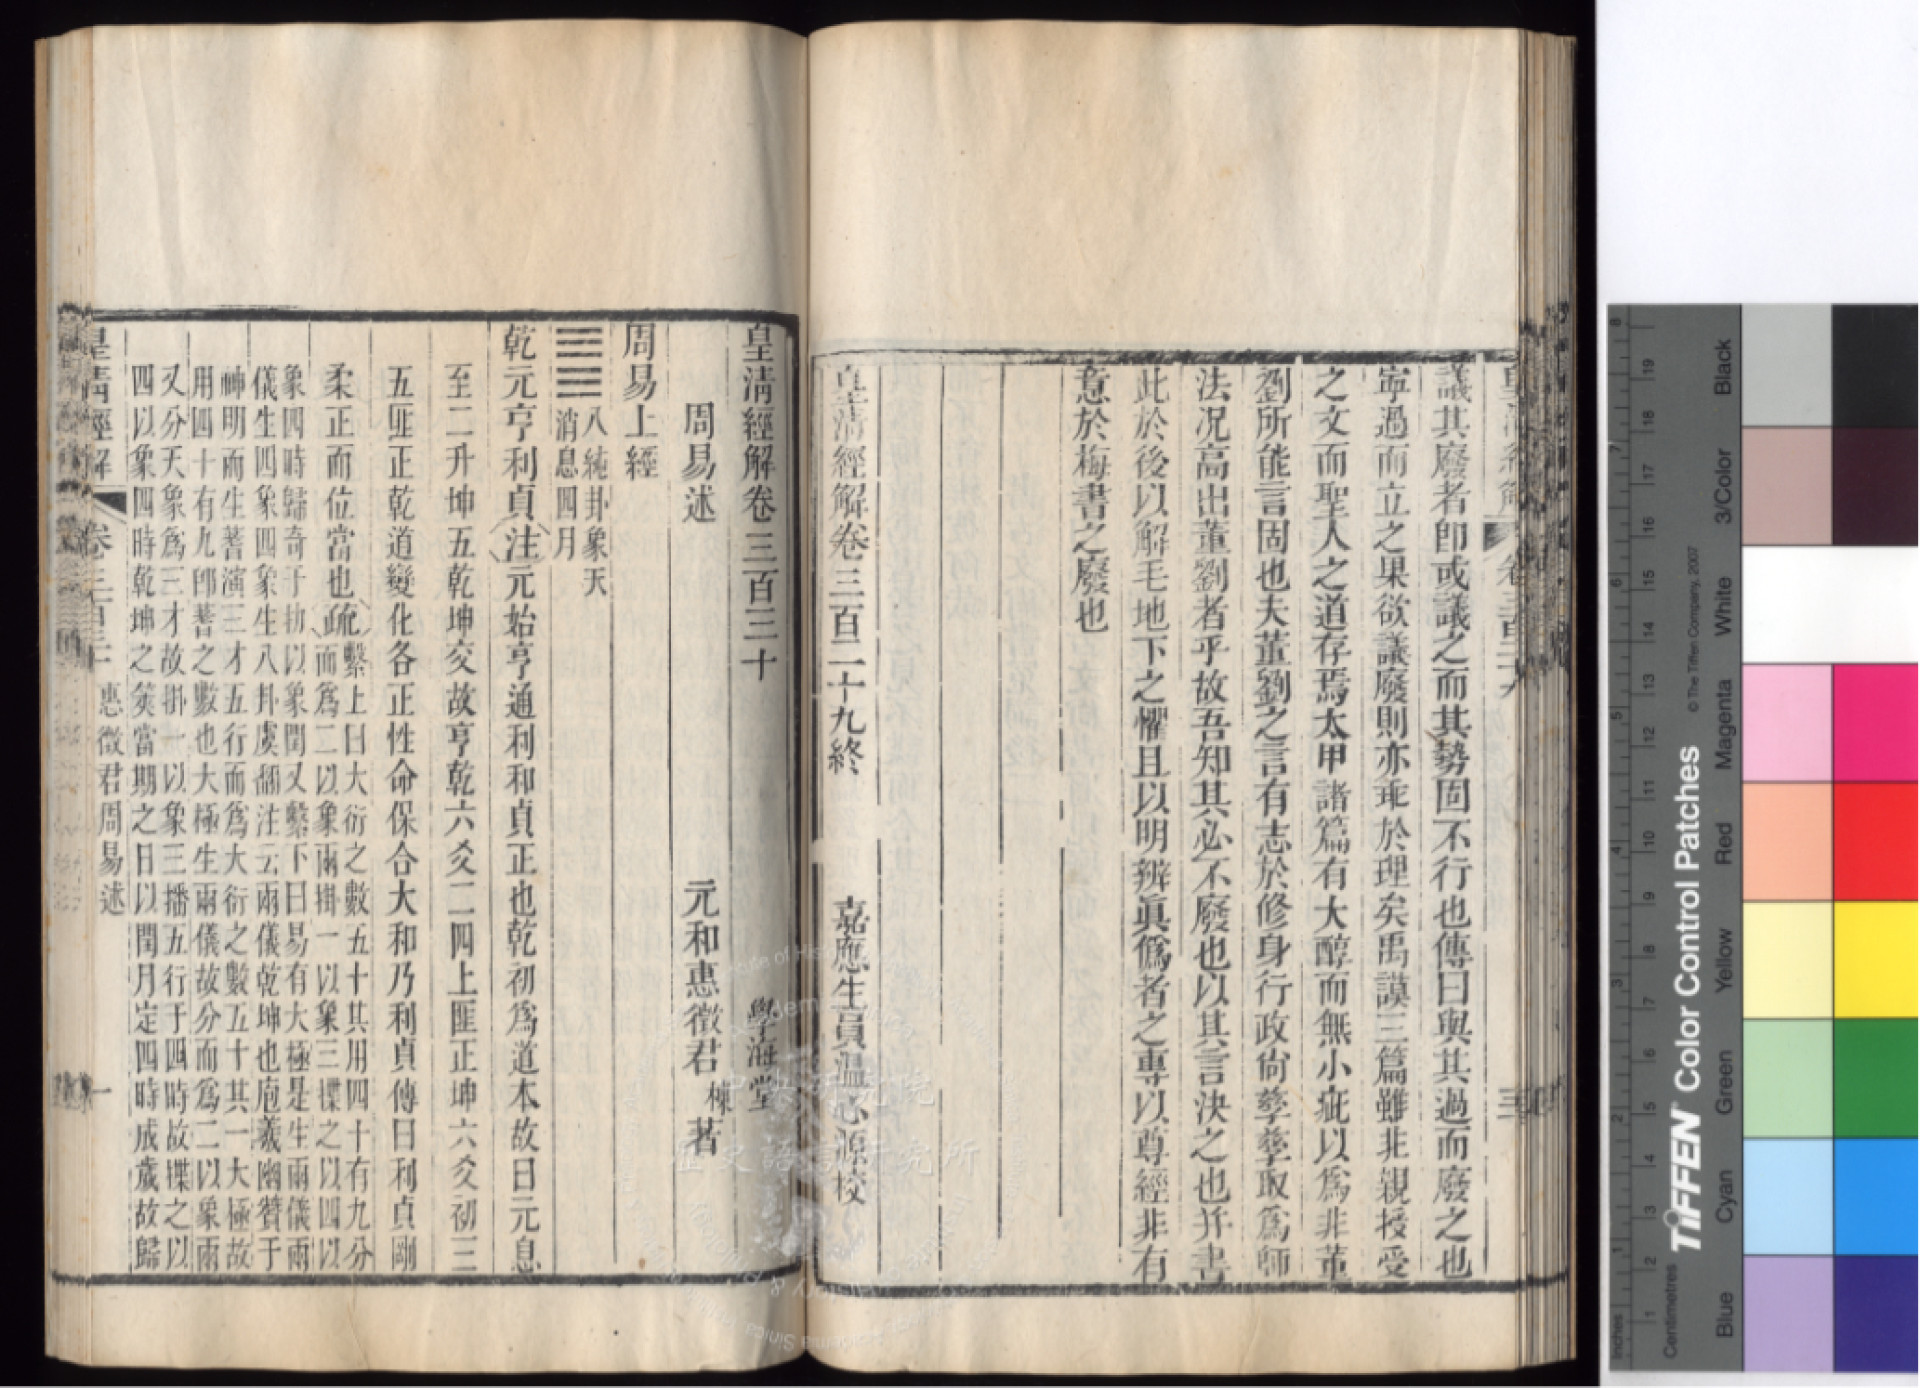 議其廢者卽或議之而其勢固不行也傳曰與其過而廢之也
寧過而立之果欲議廢則亦乖於理矣禹謨三篇雖非親授受
之文而聖人之道存焉太甲諸篇有大醇而無小疵以爲非董
劉所能言固也夫董劉之言有志於修身行政尙孳孳取爲師
法況高出董劉者乎故吾知其必不廢也以其言決之也幷書
此於後以解毛地下之懼且以明辨眞僞者之專以尊經非有
意於梅書之廢也
皇淸經解卷三百二十九終
嘉應生員溫心源校
皇淸經解卷三百三十
學海堂
周易述
元和惠徵君棟著
周易上經
八純卦象天
消息四月
乾元亨利貞注元始亨通利和貞正也乾初爲道本故曰元息
至二升坤五乾坤交故亨乾六爻二四上匪正坤六爻初三
五匪正乾道變化各正性命保合大和乃利貞傳曰利貞剛
柔正而位當也疏
繫上曰大衍之數五十其用四十有九分
而爲二以象兩掛一以象三揲之以四以
象四時歸奇于扐以象閏又繫下曰易有大極是生兩儀兩
儀生四象四象生八卦虞翻注云兩儀乾坤也庖羲幽贊于
神明而生蓍演三才五行而爲大衍之數五十其一大極故
用四十有九卽蓍之數也大極生兩儀故分而爲二以象兩
又分天象爲三才故掛一以象三播五行于四時故揲之以
四以象四時乾坤之筴當期之日以閏月定四時成歲故歸
皇淸經解
卷三百三十
惠徵君周易述
一
TIFFEN Color Control Patches
© The Tiffen Company, 2007
Centimetres
Inches
Blue
Cyan
Green
Yellow
Red
Magenta
White
3/Color
Black
中央研究院
歷史語言研究所